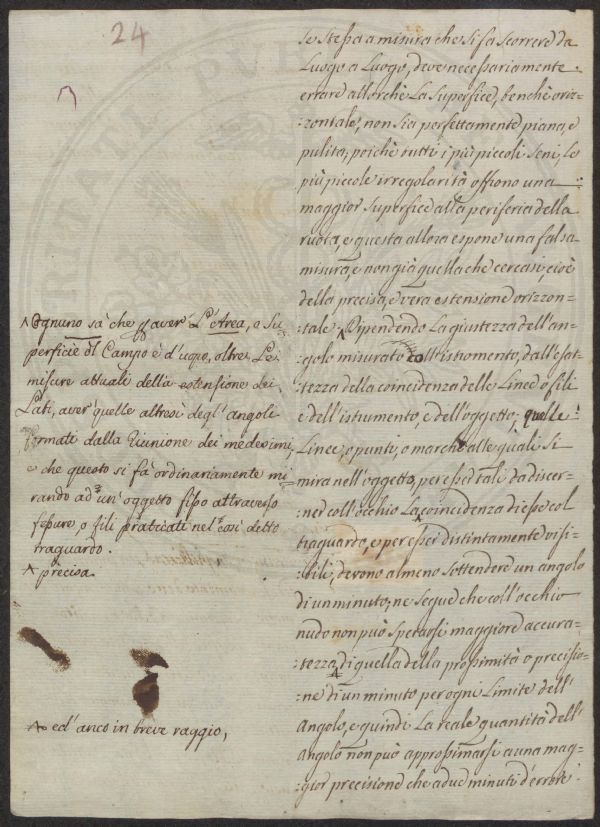 24
se stessa a misura che si fa scorrere da
Luogo a Luogo, deve necessariamente
errare allorchè La Superfice, benchè oriz=
:zontale, non sia perfettamente piana, e
pulita; poichè tutti i più piccoli seni, Le
più piccole irregolarità offrono una
maggior Superfice alla periferia della
ruota, e questa allora espone una falsa
misura, e non già quella che cercasi, cioè
della precisa, e vera estensione orizzon=
:tale ^ Dipendendo La giustezza dell'an=
:golo misurato coll'istromento, dall'esat=
:tezza della coincidenza delle Linee o fili
e dell'istrumento, e dell'oggetto; quelle
Linee, o punti, o marche alle quali si
mira nell'oggetto, per esser tali da discer=
:ner coll'occhio La ^ coincidenza di esse col
traguardo, e per esser distintamente visi=
:bili, devono almeno sottendere un angolo
di un minuto; ne segue che coll'occhio
nudo non può sperarsi maggiore accura=
:tezza ^ di quella della prossimità o precisio=
:ne di un minuto per ogni Limite dell'
Angolo, e quindi La reale quantità dell'
Angolo non può approssimarsi a una mag=
:gior precisione che a due minuti d'errore
^ Ognuno sà che per aver L'Area, o Su=
perficie del Campo è d'uopo, oltre Le
misure attuali della estensione dei
Lati, aver quelle altresì degl'angoli
formati dalla riunione dei medesimi,
e che questo si fà ordinariamente mi=
rando ad un'oggetto fisso attraverso
fessure, o fili praticati nel così detto
traguardo.
^ precisa
^ ed'anco in breve raggio,